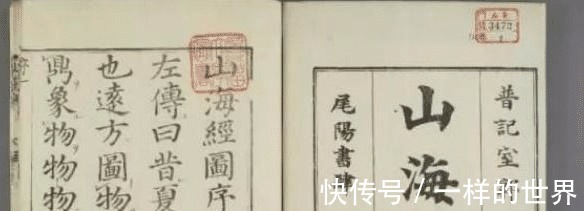 3472
晋記室
山海
尾陽書
山海經圖序
左傳曰昔夏
也遠方圖物
鼎象物物物
快传号 / 一样的世界